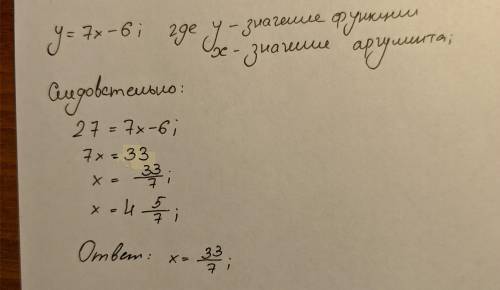 y = 7x - 6; где y - значение функции
x - значение аргумента;
Следовательно:
27 = 7x - 6;
7x = 33
x = 33/7;
x = 4 5/7;
Ответ: x = 33/7;